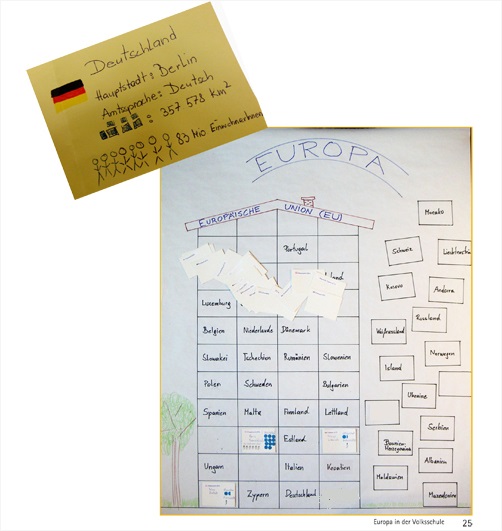 Deutschland
Hauptstadt: Berlin
Amtssprache: Deutsch
: 357 578 km²
83 Mio EinwohnerInnen
EUROPA
EUROPÄISCHE UNION (EU)
Portugal
Luxemburg
Belgien Niederlande Dänemark
Slowakei Tschechien Rumänien Slowenien
Polen Schweden Bulgarien
Spanien Malta Finnland Lettland
Estland
Ungarn Italien Kroatien
Zypern Deutschland
Monako
Schweiz Liechtenstein
Kosovo Andorra
Russland
Weißrussland
Norwegen
Island
Ukraine
Serbien
Bosnien-
Herzegowina
Albanien
Moldawien
Europa in der Volksschule 25